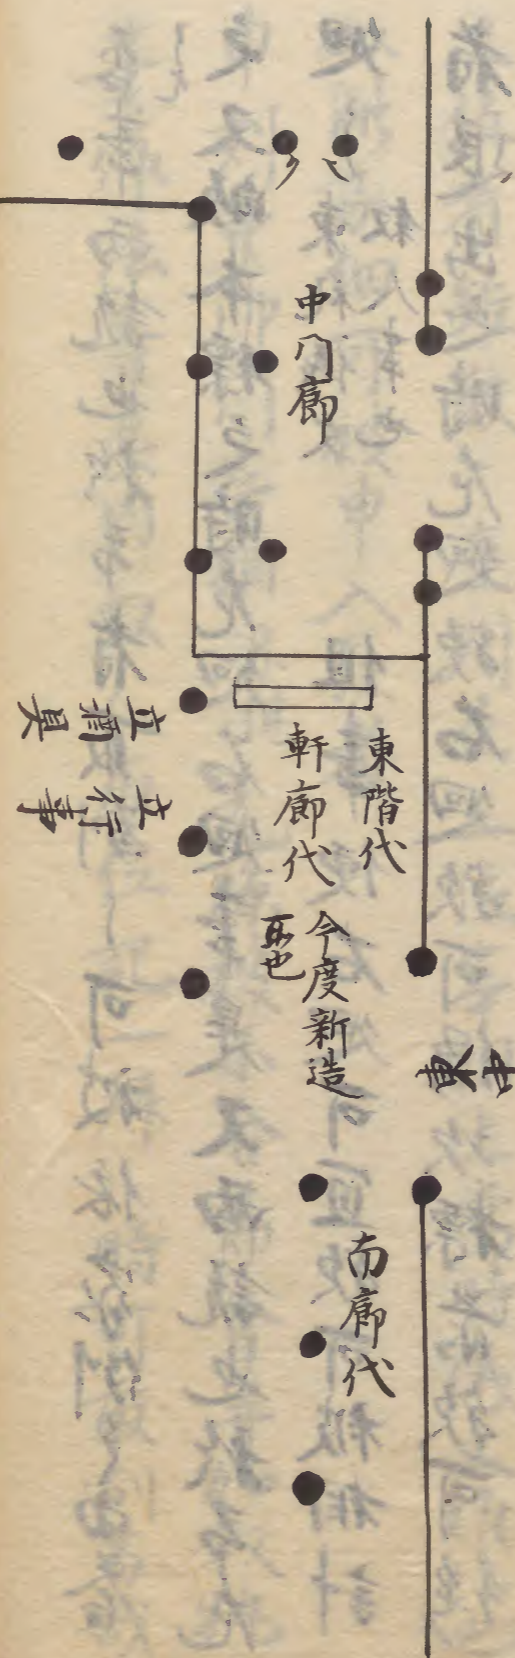 中门廊
東階代
軒廊代
今度新造
所也
立酒具
立行事
南廊代